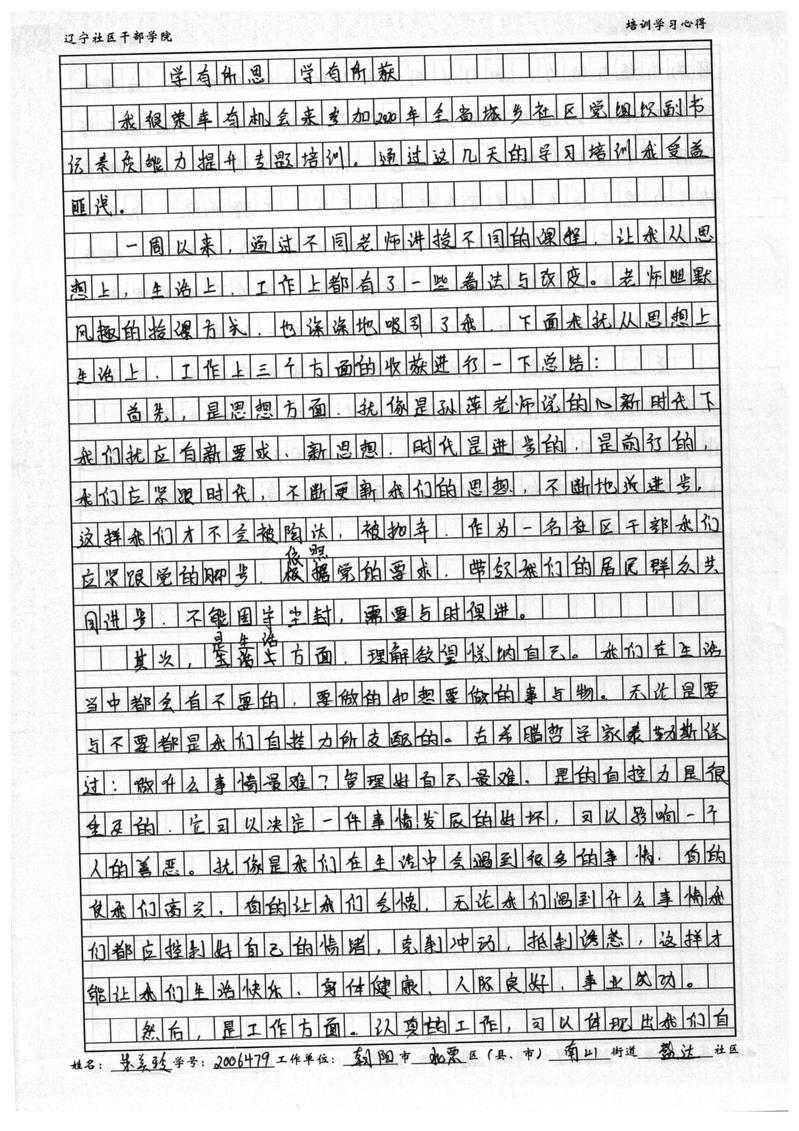 辽宁社区干部学院 培训学习心得
学有所思 学有所获
我很荣幸有机会来参加200年全省城乡社区党组织副书
记素质能力提升专题培训。通过这几天的学习培训我受益
匪浅。
一周以来，通过不同老师讲授不同的课程，让我从思
想上，生活上、工作上都有了一些看法与改变。老师幽默
风趣的授课方式，也深深地吸引了我，下面我就从思想上
生活上、工作上三个方面的收获进行一下总结：
首先，是思想方面，就像是孙萍老师说的心新时代下
我们就应有新要求、新思想，时代是进步的，是前行的，
我们应紧跟时代，不断更新我们的思想，不断地近进步，
这样我们才不会被淘汰，被抛弃，作为一名社区干部我们
应紧跟党的脚步，依照党的要求，带领我们的居民群众共
同进步，不能固步尘封，需要与时俱进。
其次，是生活方面，理解欲望悦纳自己。我们在生活
当中都会有不要的，要做的和想要做的事与物。无论是要
与不要都是我们自控力所支配的。古希腊哲学家泰勒斯说
过：做什么事情最难？管理好自己最难，是的自控力是很
重要的，它可以决定一件事情发展的好坏，可以影响一个
人的善恶。就像是我们在生活中会遇到很多的事情，有的
使我们高兴，有的让我们气愤，无论我们遇到什么事情我
们都应控制好自己的情绪，克制冲动，抵制诱惑，这样才
能让我们生活快乐、身体健康、人际良好，事业成功。
然后，是工作方面。认真的工作，可以体现出我们自
姓名： 学号：2006479 工作单位：朝阳市 北票区（县、市）南山街道 社区